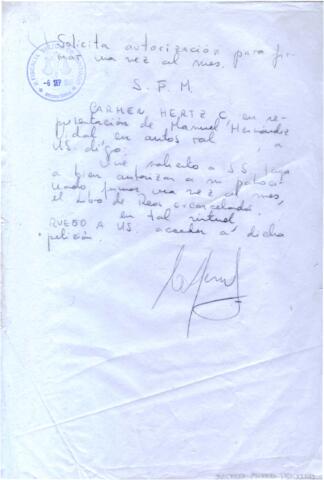 Solicita autorización para fir
mar una vez al mes.
S. F. M.
CARMEN HERTZ C. en re
presentación de Manuel Hernández
Vidal en autos rol , a
US. digo:
Que solicito a SS. tenga
a bien autorizar a mi patroci
nado firmar una vez al mes
el Libro de Reos excarcelados.
en tal virtud
RUEGO A US. acceder a dicha
petición.
6 SEP